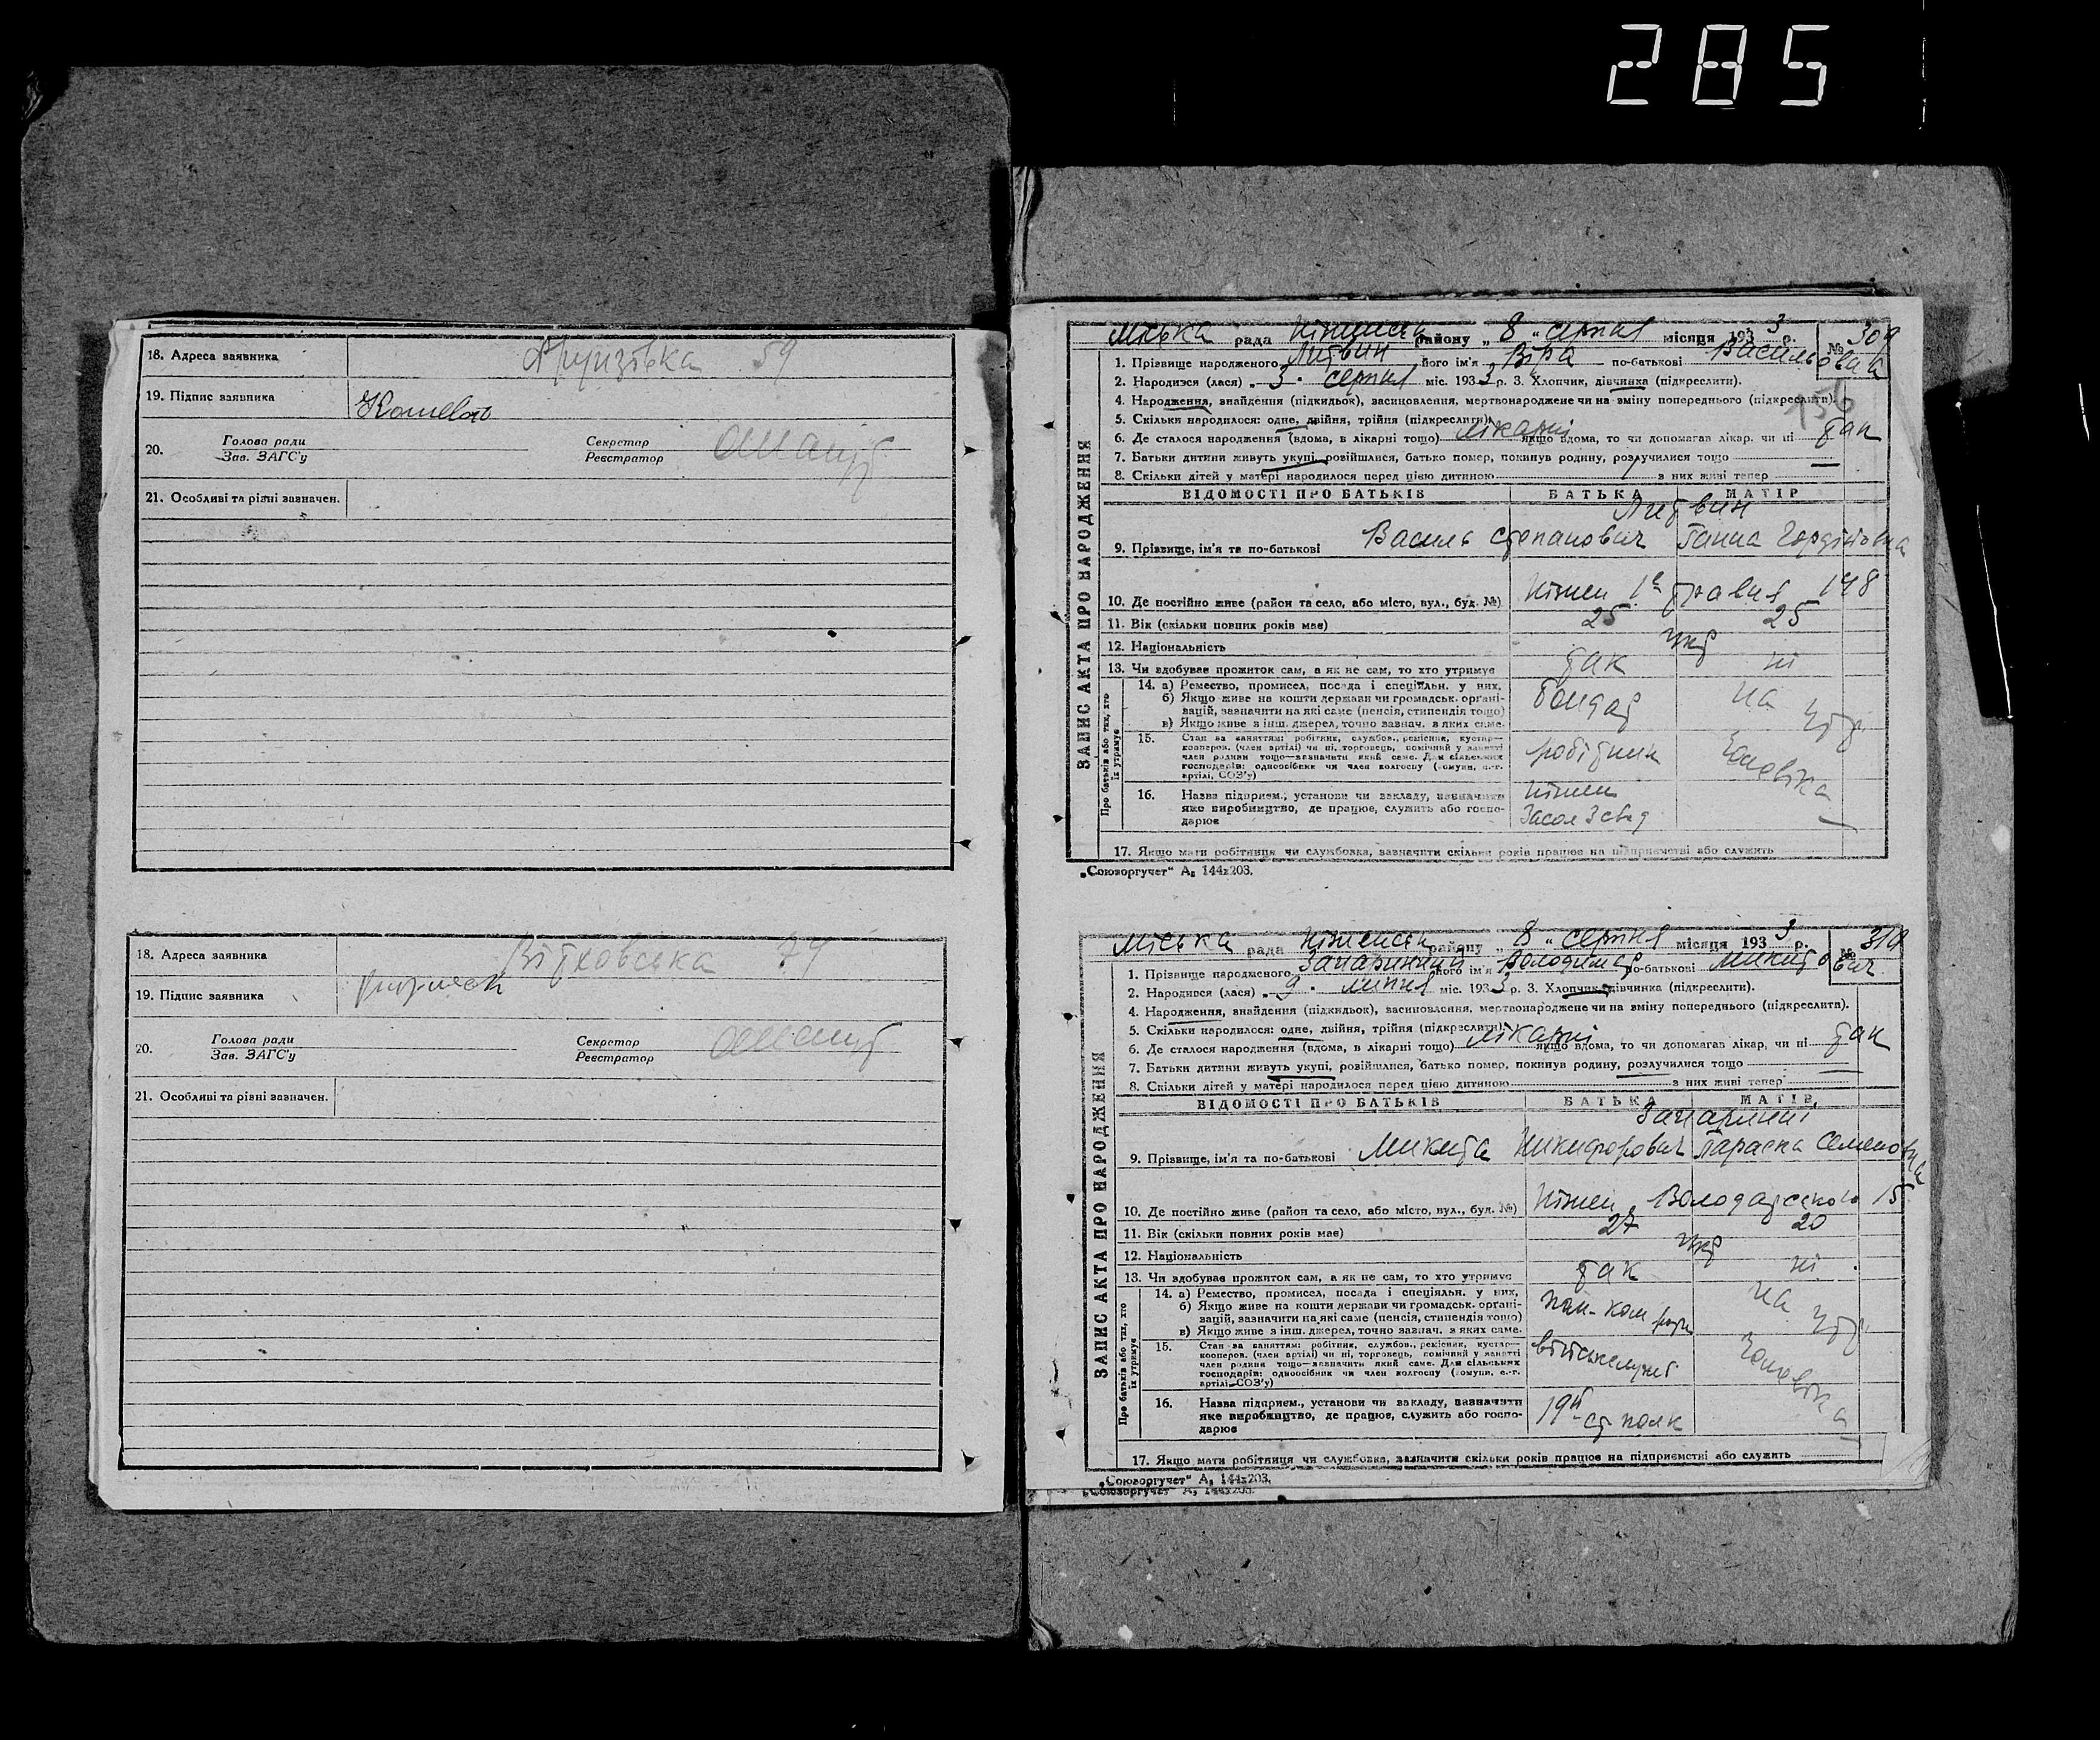 285
18. Адреса заявника 59
19. Підпис заявника
20. Голова ради Секретар
Зав. ЗАГС'у Реєстратор
21. Особливі та різні зазначен.
18. Адреса заявника Вітковська 74
19. Підпис заявника
20. Голова ради Секретар
Зав. ЗАГС'у Реєстратор
21. Особливі та різні зазначен.
ЗАПИС АКТА ПРО НАРОДЖЕННЯ
Міська рада Ніженськ району „ 8 “ серпня місяця 1933 р. № 309
1. Прізвище народженого Литвин його ім'я Віра по-батькові Васильовна
2. Народився (лася) „ 3 “ серпня міс. 1933 р. 3. Хлопчик, дівчинка (підкреслити).
4. Народження, знайдення (підкидьок), засиновлення, мертвонароджене чи на зміну попереднього (підкреслити).
5. Скільки народилося: одне, двійня, трійня (підкреслити)
6. Де сталося народження (вдома, в лікарні тощо) лікарні якщо вдома, то чи допомагав лікар, чи ні так
7. Батьки дитини живуть укупі, розійшлися, батько помер, покинув родину, розлучилися тощо —
8. Скільки дітей у матері народилося перед цією дитиною 1 з них живі тепер
ВІДОМОСТІ ПРО БАТЬКІВ БАТЬКА МАТІР
Литвин
9. Прізвище, ім'я та по-батькові Василь Степанович Ганна Гордіївна
10. Де постійно живе (район та село, або місто, вул., буд. №) Ніжен 1е травня 148
11. Вік (скільки повних років має) 25 25
12. Національність укр
13. Чи здобуває прожиток сам, а як не сам, то хто утримує так ні
Про батьків або тих, хто їх утримує
14. а) Ремество, промисел, посада і спеціяльн. у них, бондар на утр.
б) Якщо живе на кошти держави чи громадськ. організацій, зазначити на які саме (пенсія, стипендія тощо)
в) Якщо живе з інш. джерел, точно зазнач. з яких саме.
15. Стан за заняттям: робітник, службов., ремісник, кустар— робітник чоловіка
кооперов. (член артілі) чи ні, торговець, помічний у занятті
член родини тощо—зазначити який саме. Для сільських
господарів: одноосібник чи член колгоспу (комуни, с.-г.
артілі, СОЗ'у)
16. Назва підприєм., установи чи закладу, зазначити Ніжен
яке виробництво, де працює, служить або господарює
17. Якщо мати робітниця чи службовка, зазначити скільки років працює на підприємстві або служить
„Союзоргучет“ А₅ 144х203.
ЗАПИС АКТА ПРО НАРОДЖЕННЯ
Міська рада Ніженськ району „ 8 “ серпня місяця 1933 р. № 310
1. Прізвище народженого його ім'я Володимир по-батькові Микитович
2. Народився (лася) „ 9 “ липня міс. 1933 р. 3. Хлопчик, дівчинка (підкреслити).
4. Народження, знайдення (підкидьок), засиновлення, мертвонароджене чи на зміну попереднього (підкреслити).
5. Скільки народилося: одне, двійня, трійня (підкреслити)
6. Де сталося народження (вдома, в лікарні тощо) лікарні якщо вдома, то чи допомагав лікар, чи ні так
7. Батьки дитини живуть укупі, розійшлися, батько помер, покинув родину, розлучилися тощо —
8. Скільки дітей у матері народилося перед цією дитиною з них живі тепер
ВІДОМОСТІ ПРО БАТЬКІВ БАТЬКА МАТІР
9. Прізвище, ім'я та по-батькові Микита Никифорович Параска Семеновна
10. Де постійно живе (район та село, або місто, вул., буд. №) Ніжен Володарского 15
11. Вік (скільки повних років має) 27 20
12. Національність укр
13. Чи здобуває прожиток сам, а як не сам, то хто утримує так ні
Про батьків або тих, хто їх утримує
14. а) Ремество, промисел, посада і спеціяльн. у них, на утр.
б) Якщо живе на кошти держави чи громадськ. організацій, зазначити на які саме (пенсія, стипендія тощо)
в) Якщо живе з інш. джерел, точно зазнач. з яких саме.
15. Стан за заняттям: робітник, службов., ремісник, кустар— військслужб чоловіка
кооперов. (член артілі) чи ні, торговець, помічний у занятті
член родини тощо—зазначити який саме. Для сільських
господарів: одноосібник чи член колгоспу (комуни, с.-г.
артілі, СОЗ'у)
16. Назва підприєм., установи чи закладу, зазначити 19й ст полк
яке виробництво, де працює, служить або господарює
17. Якщо мати робітниця чи службовка, зазначити скільки років працює на підприємстві або служить
„Союзоргучет“ А₅ 144х203.
„Союзоргучет“ А₅ 144х203.